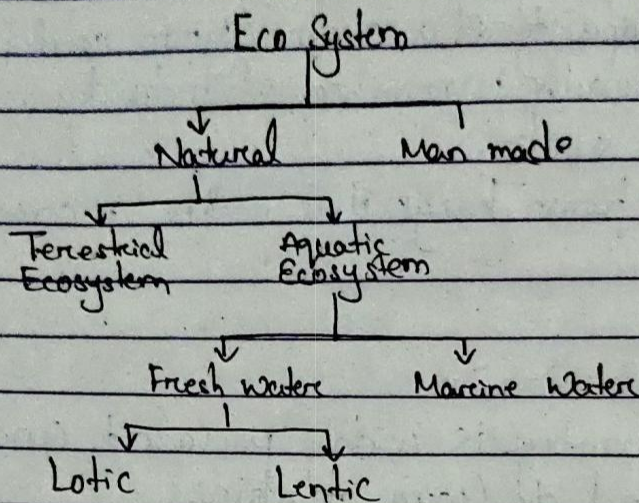 Eco System
Natural Man made
Terestrial Aquatic
Ecosystem Ecosystem
Fresh water Marine Water
Lotic Lentic